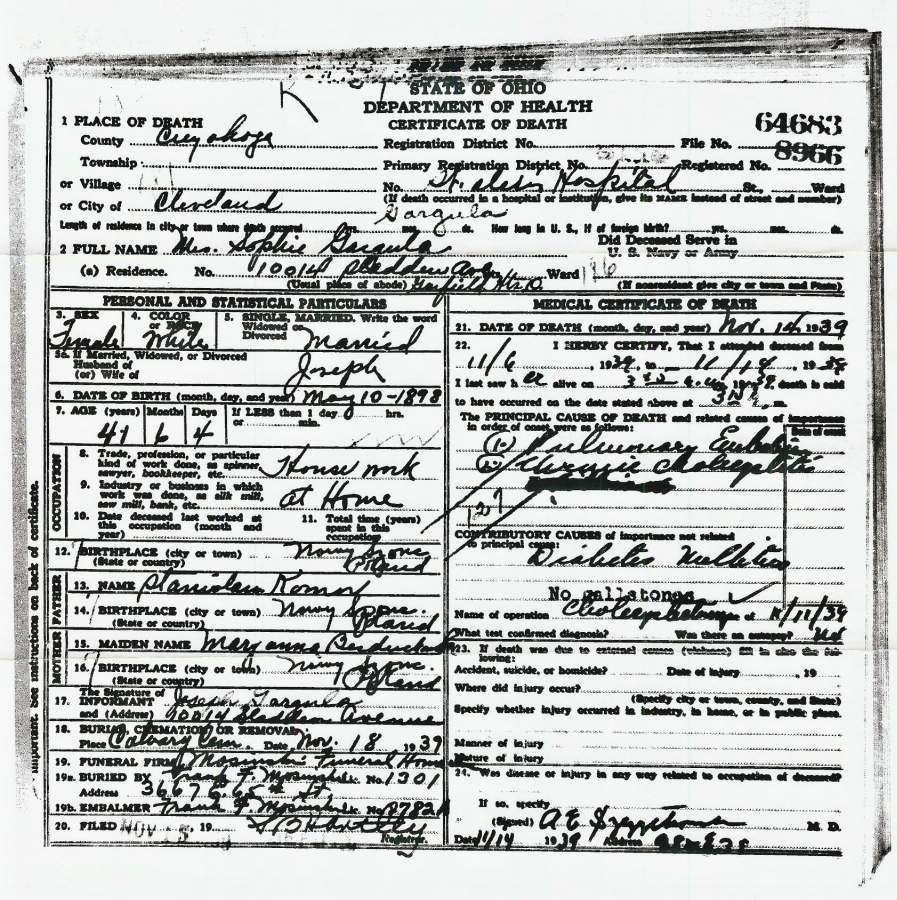 STATE OF OHIO
DEPARTMENT OF HEALTH
CERTIFICATE OF DEATH
64683
1 PLACE OF DEATH
County Cuyahoga
Registration District No. File No. 8966
Township Primary Registration District No. Registered No.
or Village No. Hospital St., Ward
or City of Cleveland (If death occurred in a hospital or institution, give its NAME instead of street and number)
Gargula
Length of residence in city or town where death occurred yrs. mos. ds. How long in U. S., if of foreign birth? yrs. mos. ds.
2 FULL NAME Mrs. Sophie Gargula Did Deceased Serve in U. S. Navy or Army
(a) Residence. No. 10014 Sladden Ave Ward
(Usual place of abode) Garfield Hts O. (If nonresident give city or town and State)
PERSONAL AND STATISTICAL PARTICULARS
3. SEX Female 4. COLOR or RACE White 5. SINGLE, MARRIED. Write the word Widowed or Divorced Married
5a. If Married, Widowed, or Divorced
Husband of
(or) Wife of Joseph
6. DATE OF BIRTH (month, day, and year) May 10-1898
7. AGE (years) Months Days If LESS than 1 day hrs.
or min.
41 6 4
OCCUPATION
8. Trade, profession, or particular kind of work done, as spinner, sawyer, bookkeeper, etc. House work
9. Industry or business in which work was done, as silk mill, saw mill, bank, etc. at Home
10. Date deceased last worked at this occupation (month and year) 11. Total time (years) spent in this occupation
12. BIRTHPLACE (city or town)
(State or country) Poland
FATHER
13. NAME
14. BIRTHPLACE (city or town)
(State or country) Poland
MOTHER
15. MAIDEN NAME Maryanna
16. BIRTHPLACE (city or town)
(State or country) Poland
17. The Signature of INFORMANT Joseph Gargula
and (Address) 10014 Sladden Avenue
18. BURIAL, CREMATION OR REMOVAL
Place Calvary Cem. Date Nov. 18 1939
19. FUNERAL FIRM Mosinski Funeral Home
19a. BURIED BY Frank F. Mosinski Lic. No. 1301
Address 3667 E. 65th St
19b. EMBALMER Frank F Mosinski Lic. No. 2782A
20. FILED NOV 19
Registrar.
Important. See instructions on back of certificate.
MEDICAL CERTIFICATE OF DEATH
21. DATE OF DEATH (month, day, and year) Nov. 14, 1939
22. I HEREBY CERTIFY, That I attended deceased from
11/6, 1939, to 11/14 1939
I last saw her alive on 1939, death is said
to have occurred on the date stated above at m.
The PRINCIPAL CAUSE OF DEATH and related causes of importance
in order of onset were as follows: Date of onset
(1) Pulmonary Embolism
(2)
127
CONTRIBUTORY CAUSES of importance not related to principal cause:
Diabetes Mellitus
No gallstones
Name of operation Cholecystectomy Date of 11/11/39
What test confirmed diagnosis? Was there an autopsy? No
23. If death was due to external causes (violence) fill in also the following:
Accident, suicide, or homicide? Date of injury , 19
Where did injury occur?
(Specify city or town, county, and State)
Specify whether injury occurred in industry, in home, or in public place.
Manner of injury
Nature of injury
24. Was disease or injury in any way related to occupation of deceased?
If so, specify
(Signed) M. D.
Date 11/14 1939 Address